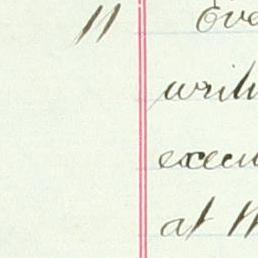 11 Eve
writ
execu
at